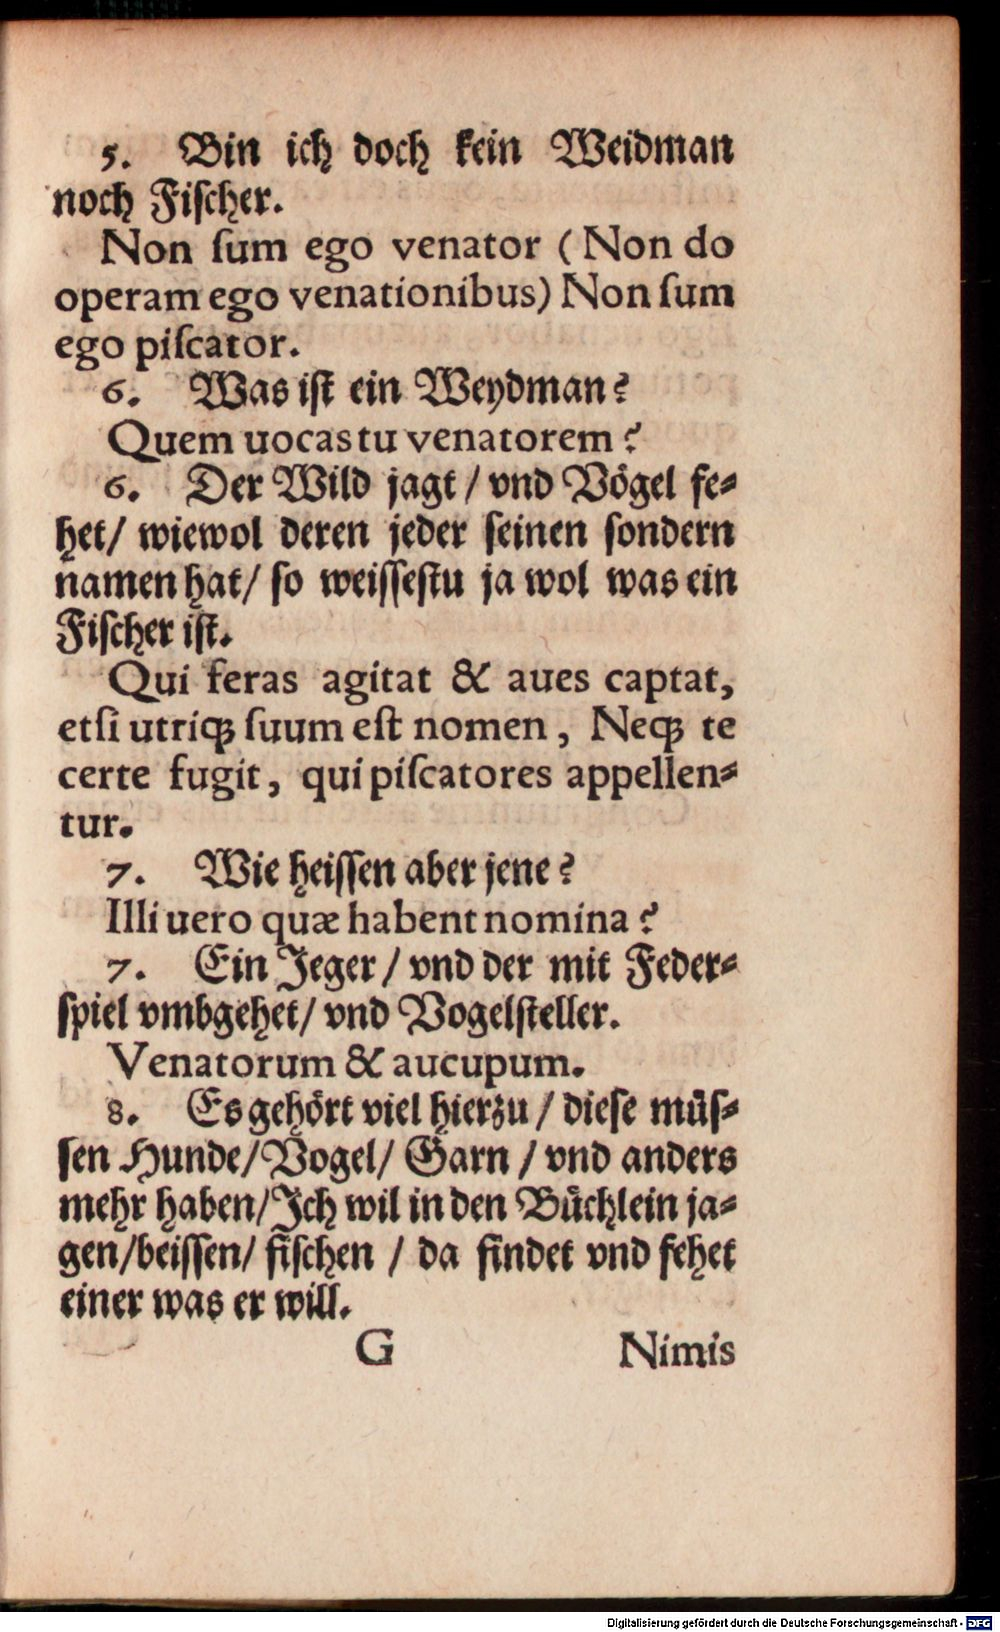 5. Bin ich doch kein Weidman
noch Fiſcher.
Non ſum ego venator ( Non do
operam ego venationibus) Non ſum
ego piſcator.
6. Was iſt ein Weydman?
Quem uocas tu venatorem ?
6. Der Wild jagt / vnd Vögel fe⸗
het/ wiewol deren jeder ſeinen ſondern
namen hat/ ſo weiſſeſtu ja wol was ein
Fiſcher iſt.
Qui feras agitat & aues captat,
etſi utriqꝫ ſuum eſt nomen , Neqꝫ te
certe fugit, qui piſcatores appellen⸗
tur.
7. Wie heiſſen aber jene?
Illi uero quæ habent nomina ?
7. Ein Jeger / vnd der mit Feder⸗
ſpiel vmbgehet/ vnd Vogelſteller.
Venatorum & aucupum.
8. Es gehört viel hierzu / dieſe müſ⸗
ſen Hunde/Vogel/ Garn / vnd anders
mehr haben/Ich wil in den Büchlein ja⸗
gen/beiſſen/ fiſchen / da findet vnd fehet
einer was er will.
G Nimis
Digitalisierung gefördert durch die Deutsche Forschungsgemeinschaft - DFG